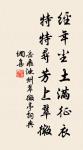 經年塵土滿征衣
特特尋芳上翠微
岳飛池州翠微亭詞典
網集